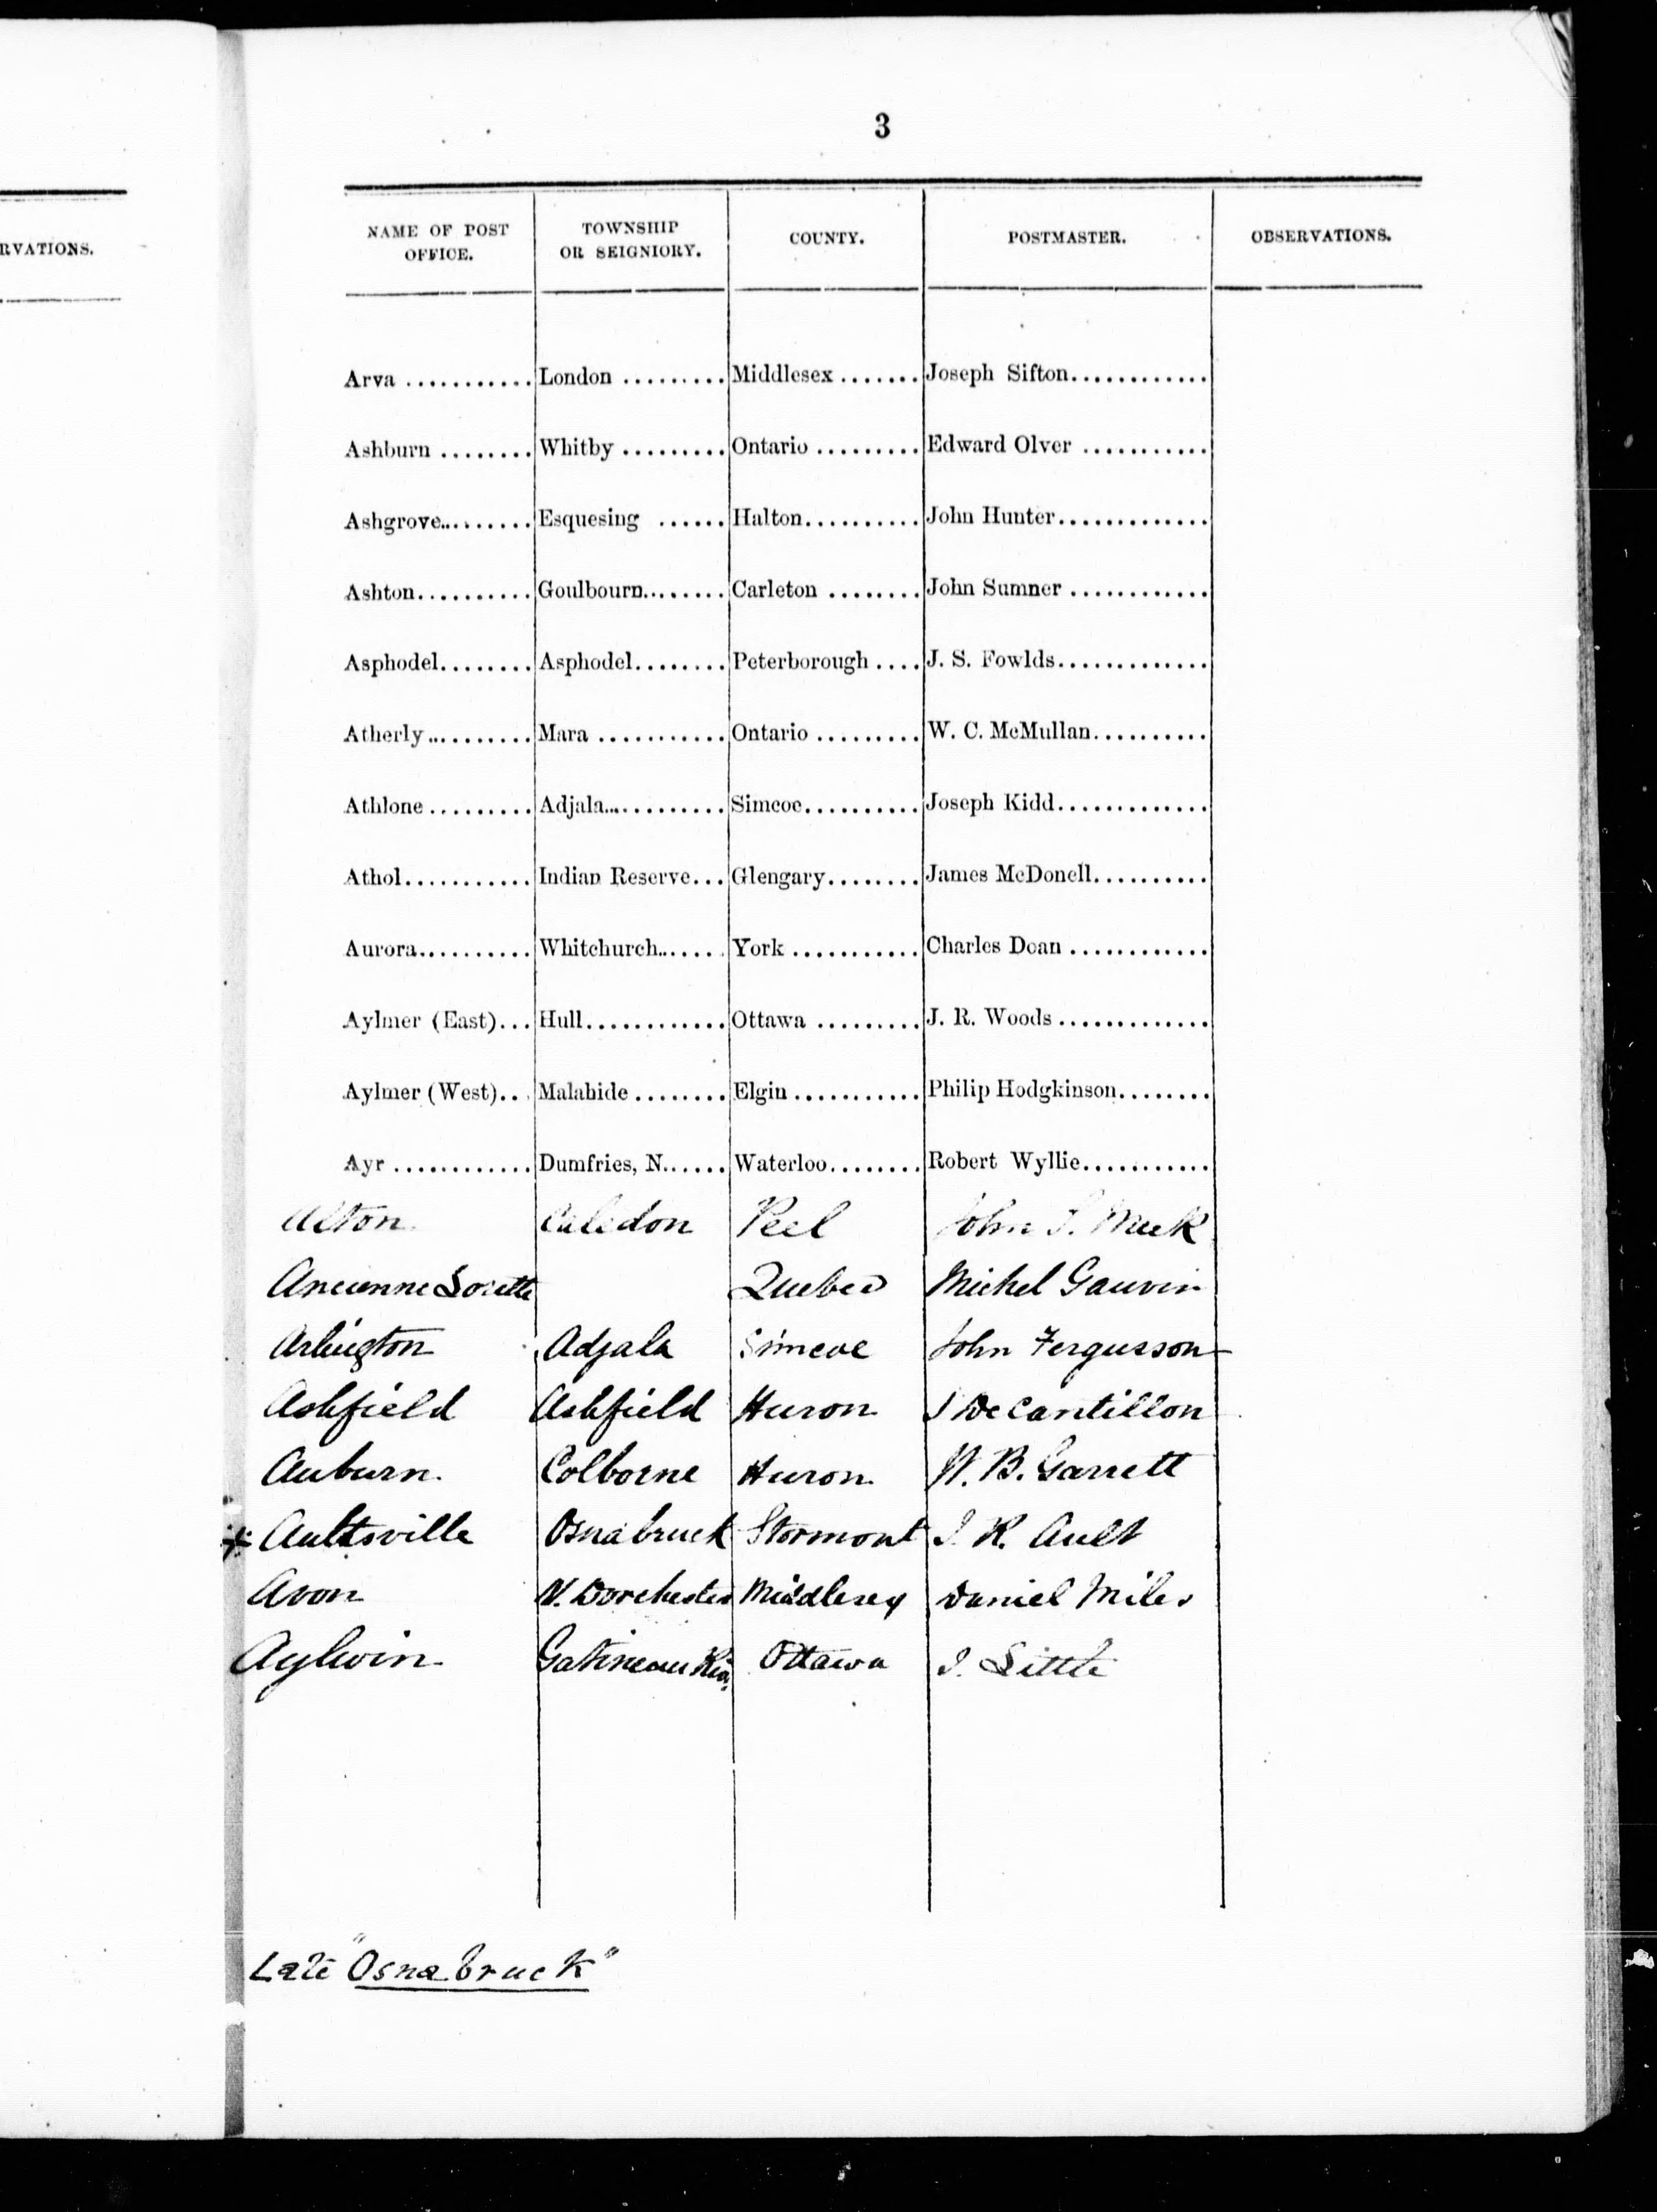 RVATIONS.
3
NAME OF POST OFFICE. TOWNSHIP OR SEIGNIORY. COUNTY. POSTMASTER. OBSERVATIONS.
Arva ........... London ......... Middlesex ....... Joseph Sifton............
Ashburn ........ Whitby ......... Ontario ......... Edward Olver ...........
Ashgrove........ Esquesing ...... Halton.......... John Hunter.............
Ashton.......... Goulbourn........ Carleton ........ John Sumner ............
Asphodel........ Asphodel........ Peterborough .... J. S. Fowlds.............
Atherly.......... Mara ........... Ontario ......... W. C. McMullan..........
Athlone ......... Adjala............ Simcoe.......... Joseph Kidd.............
Athol........... Indian Reserve... Glengary........ James McDonell..........
Aurora.......... Whitchurch...... York ........... Charles Doan ............
Aylmer (East)... Hull............ Ottawa ......... J. R. Woods .............
Aylmer (West)... Malahide ........ Elgin ........... Philip Hodgkinson........
Ayr ............ Dumfries, N...... Waterloo........ Robert Wyllie...........
Alton Caledon Peel John S. Meek
Ancienne Lorette Quebec Michel Gauvin
Arlington Adjala Simcoe John Fergusson
Ashfield Ashfield Huron J DeCantillon
Auburn. Colborne Huron W. B. Garrett
* Aultsville Osnabruck Stormont I. R. Ault
Avon N. Dorchester Middlesex Daniel Miles
Aylwin Gatineau Riv. Ottawa J. Little
Late "Osnabruck"